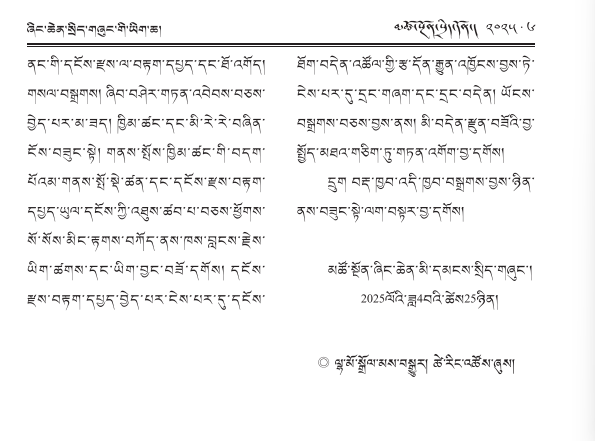 ཞིང་ཆེན་སྲིད་གཞུང་གི་ཡིག་ཆ།
༢༠༢༥.༦
ནང་གི་དངོས་རྫས་ལ་བརྟག་དཔྱད་དང་ཐོ་འགོད།
གསལ་བསྒྲགས། ཞིབ་བཤེར་གཏན་འབེབས་བཅས་
བྱེད་པར་མ་ཟད། ཁྱིམ་ཚང་དང་མི་རེ་རེ་བཞིན་
ངོས་བཟུང་སྟེ། གནས་སྤོས་ཁྱིམ་ཚང་གི་བདག་
པོའམ་གནས་སྤོ་སྡེ་ཚན་དང་དངོས་རྫས་བརྟག་
དཔྱད་ཡུལ་དངོས་ཀྱི་འཐུས་ཚབ་པ་བཅས་ཕྱོགས་
སོ་སོས་མིང་རྟགས་བཀོད་ནས་ཁས་བླངས་རྗེས་
ཡིག་ཚགས་དང་ཡིག་བྱང་བཟོ་དགོས། དངོས་
རྫས་བརྟག་དཔྱད་བྱེད་པར་ངེས་པར་དུ་དངོས་
ཐོག་བདེན་འཚོལ་གྱི་རྩ་དོན་རྒྱུན་འཁྱོངས་བྱས་ཏེ་
ངེས་པར་དུ་དྲང་གཞག་དང་དྲང་བདེན། ཡོངས་
བསྒྲགས་བཅས་བྱས་ནས། མི་བདེན་རྫུན་བཟོའི་བྱ་
སྤྱོད་མཐའ་གཅིག་ཏུ་གཏན་འགོག་བྱ་དགོས།
དྲུག བརྡ་ཁྱབ་འདི་ཁྱབ་བསྒྲགས་བྱས་ཉིན་
ནས་བཟུང་སྟེ་ལག་བསྟར་བྱ་དགོས།
མཚོ་སྔོན་ཞིང་ཆེན་མི་དམངས་སྲིད་གཞུང་།
2025ལོའི་ཟླ4བའི་ཚེས25ཉིན།
◎ ལྷ་མོ་སྒྲོལ་མས་བསྒྱུར། ཚེ་རིང་འཚོས་ཞུས།